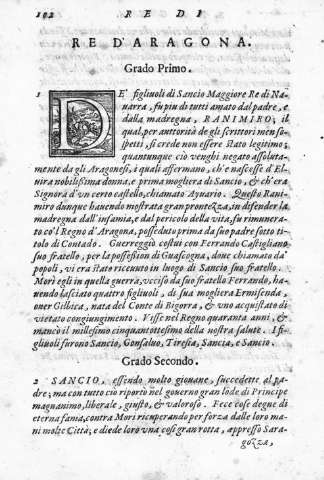 102 RE DI
RE D'ARAGONA.
Grado Primo.
1 DE' figliuoli di Sancio Maggiore Re di Na-
uarra, fu piu di tutti amato dal padre, e
dalla madregna, RANIMIRO; il
qual, per auttorità de gli scrittori men so-
spetti, si crede non essere stato legitimo;
quantunque ciò venghi negato assoluta-
mente da gli Aragonesi, i quali affermano, ch'e nascesse d'El-
uira nobilissima donna, e prima mogliera di Sancio, & ch'era
Signora d'vn certo castello, chiamato Ayuario. Questo Rani-
miro dunque hauendo mostrata gran prontezza, in difender la
madregna dall'infamia, e dal pericolo della vita, fu rimunera-
to co'l Regno d'Aragona, posseduto prima da suo padre sotto ti-
tolo di Contado. Guerreggiò costui con Ferrando Castigliano
suo fratello, per la possession di Guascogna, doue chiamato da'
popoli, vi era stato riceuuto in luogo di Sancio suo fratello.
Morì egli in quella guerra, vcciso da suo fratello Ferrando, ha-
uendo lasciato quattro figliuoli, di sua mogliera Ermisenda,
ouer Gilbica, nata del Conte di Bigorra, & vno acquistato di
vietato congiungimento. Visse nel Regno quaranta anni, &
mancò il millesimo cinquantottesimo della nostra salute. I fi-
gliuoli furono Sancio, Gonsaluo, Tiresia, Sancia, e Sancio.
Grado Secondo.
2 SANCIO, essendo molto giouane, succedette al pa-
dre; ma con tutto ciò riportò nel gouerno gran lode di Principe
magnanimo, liberale, giusto, & valoroso. Fece cose degne di
eterna fama, contra Mori ricuperando per forza dalle loro ma
ni molte Città; e diede loro vna così gran rotta, appresso Sara-
gozza,